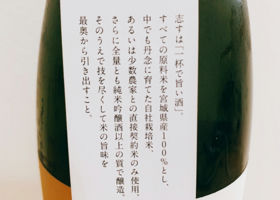 志すは「一杯で旨い酒」、
すべての原料米を宮城県産100%とし、
中でも丹念に育てた自社栽培米、
あるいは少数農家との直接契約米のみ使用、
さらに全量とも純米吟醸酒以上の質で醸造、
そのうえで技を尽くして米の旨味を
最奥から引き出すこと。